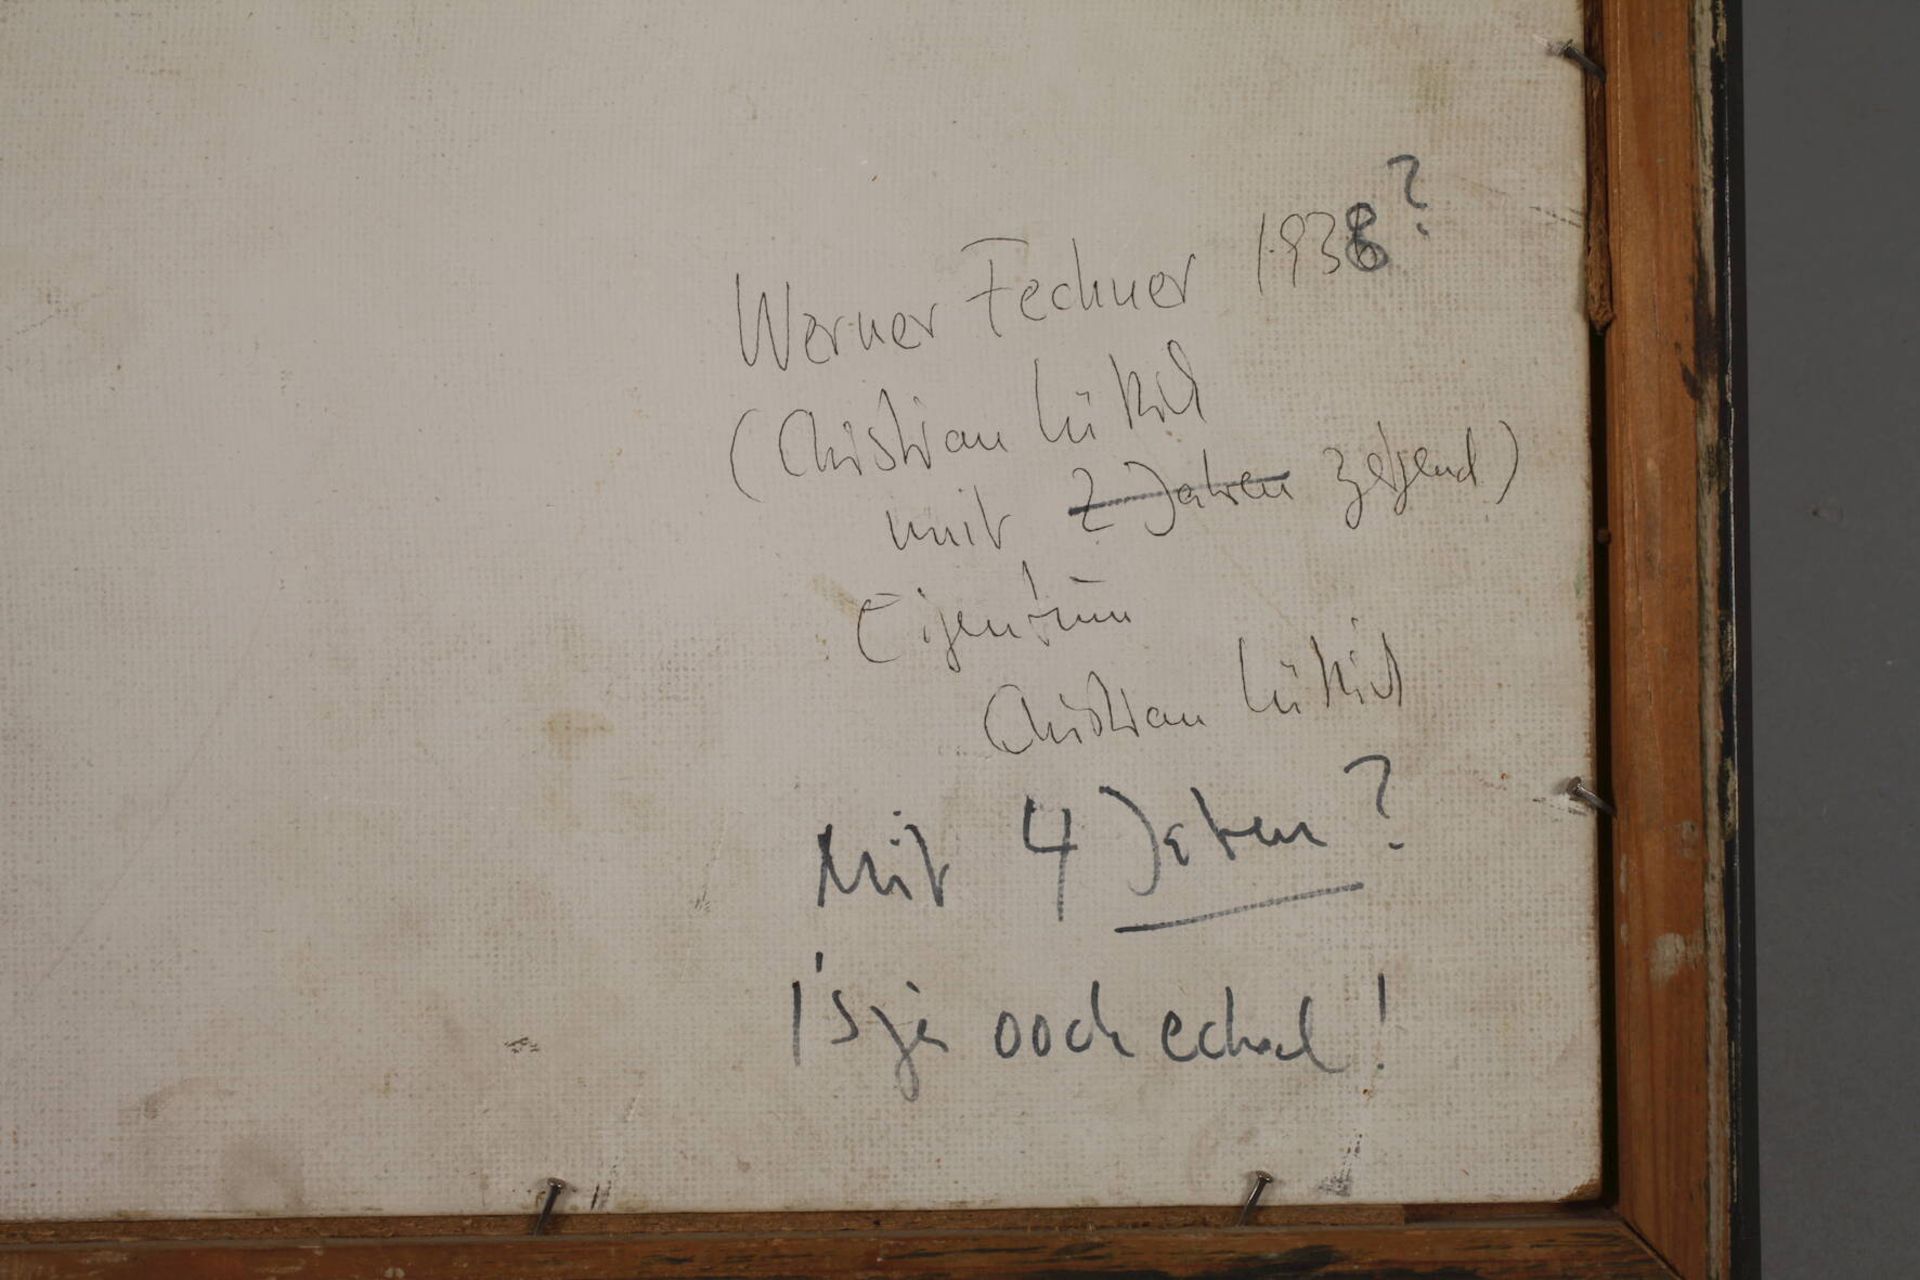 Werner Fechner 1938?
(Christian Lüttich
mit 2 Jahren zeigend)
Eigentum
Christian Lüttich
Mit 4 Jahren?
I's ja ooch echal!